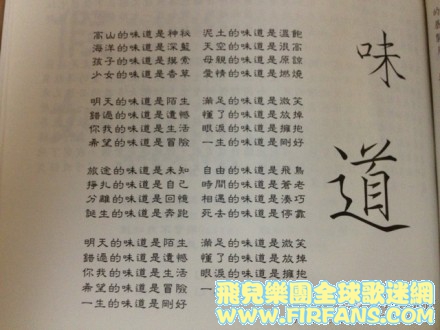 味道
高山的味道是神秘 泥土的味道是溫飽
海洋的味道是深藍 天空的味道是很高
孩子的味道是摸索 母親的味道是原諒
少女的味道是香草 愛情的味道是燃燒
明天的味道是陌生 滿足的味道是微笑
錯過的味道是遺憾 懂了的味道是放掉
你我的味道是生活 眼淚的味道是擁抱
希望的味道是冒險 一生的味道是剛好
旅途的味道是未知 自由的味道是飛鳥
掙扎的味道是自己 時間的味道是蒼老
分離的味道是回憶 相遇的味道是湊巧
誕生的味道是奔跑 死去的味道是停靠
明天的味道是陌生 滿足的味道是微笑
錯過的味道是遺憾 懂了的味道是放掉
你我的味道是生活 眼淚的味道是擁抱
希望的味道是冒險 一生的味道是
一生的味道是剛好
飛兒樂團全球歌迷網
WWW.FIRFANS.COM